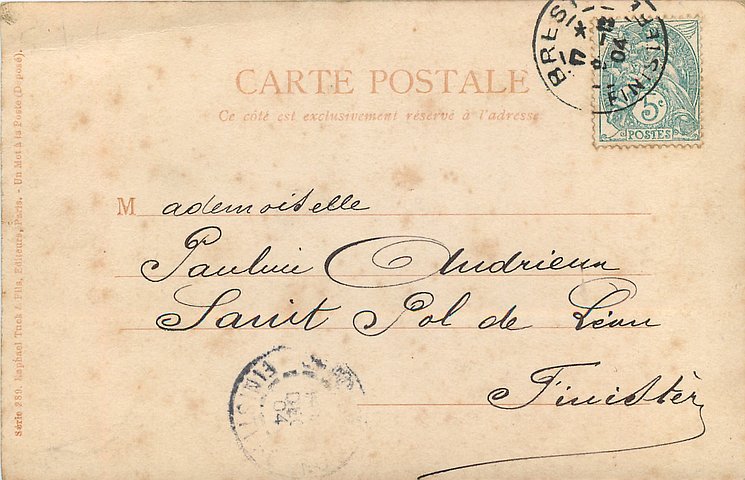 CARTE POSTALE
Ce côté est exclusivement réservé à l'adresse
BREST
FINISTERE
04
5c
POSTES
Mademoiselle
Pauline Andrieux
Saint Pol de Léon
Finistèr
FINIST
04
Série 289. Raphael Tuck & Fils, Editeurs, Paris. - Un Mot à la Poste (Déposé).